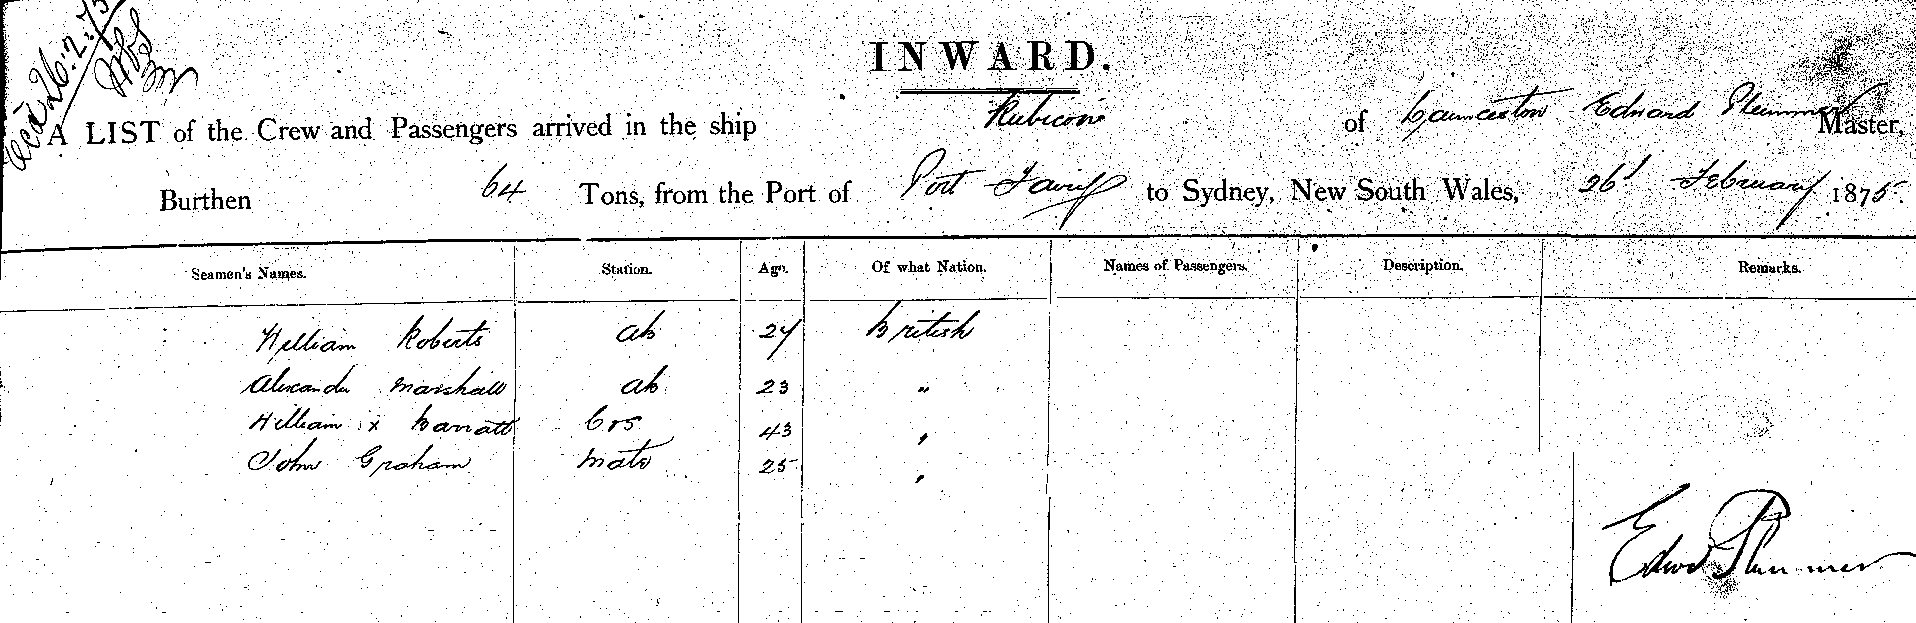 Recd 26:2:75
INWARD.
A LIST of the Crew and Passengers arrived in the ship Rubicon of Launceston Edward Plummer Master,
Burthen 64 Tons, from the Port of Port Fairy to Sydney, New South Wales, 26th February 1875.
Seamen's Names. Station. Age. Of what Nation. Names of Passengers. Description. Remarks.
William Roberts ab 24 British
Alexander Marshall ab 23 "
William x Barratt 43 "
John Graham mate 25 "
Edwd Plummer